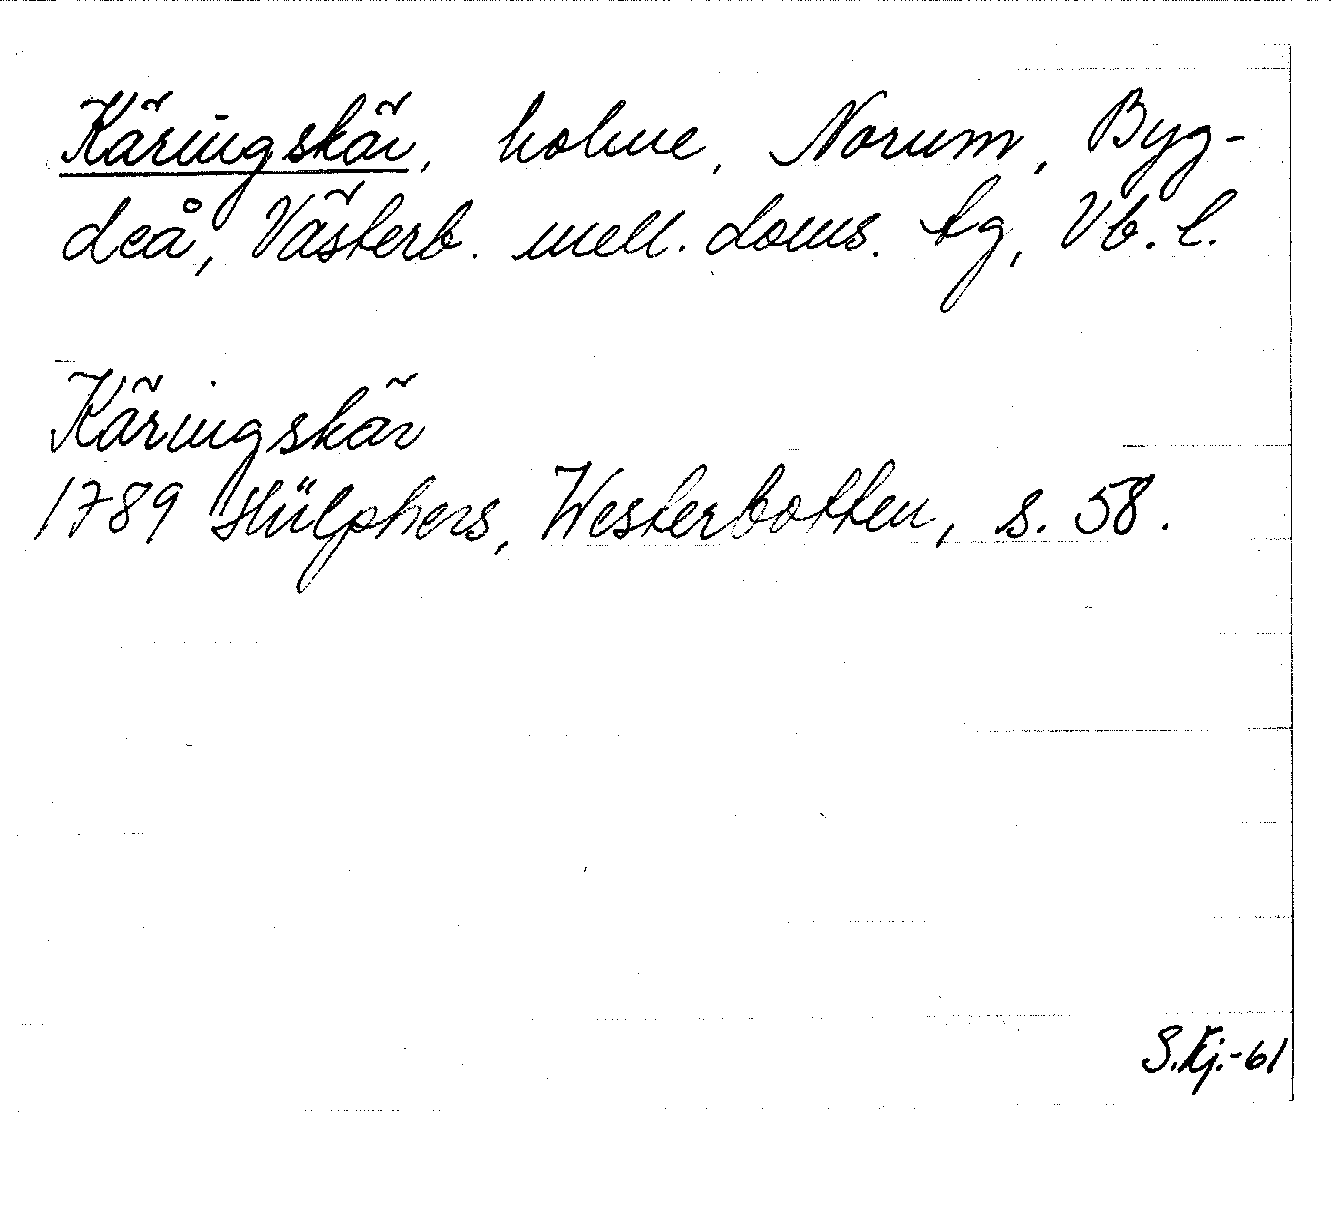 Käringskär, holme, Norum, Byg-
deå, Västerb. mell. doms. tg, Vb. l.
Käringskär
1789 Hülphers, Westerbotten, s. 58.
S.Kj.-61